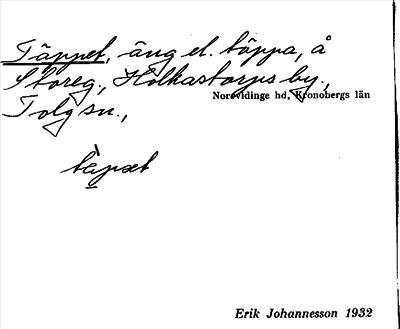 Täppet, äng el. täppa, å
Storeg., Holkastorps by.,
Norrvidinge hd, Kronobergs län
Tolg sn.,
tæ̀pət
Erik Johannesson 1932